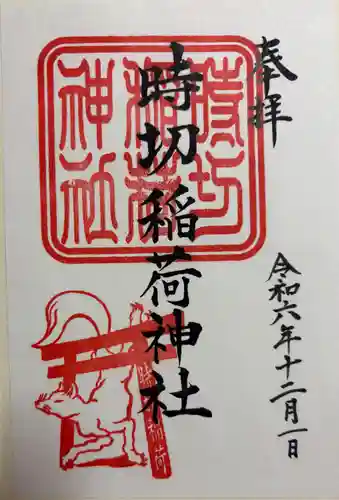 奉拝
令和六年十二月一日
時切稲荷神社
時切
稲荷
神社
時切稲荷